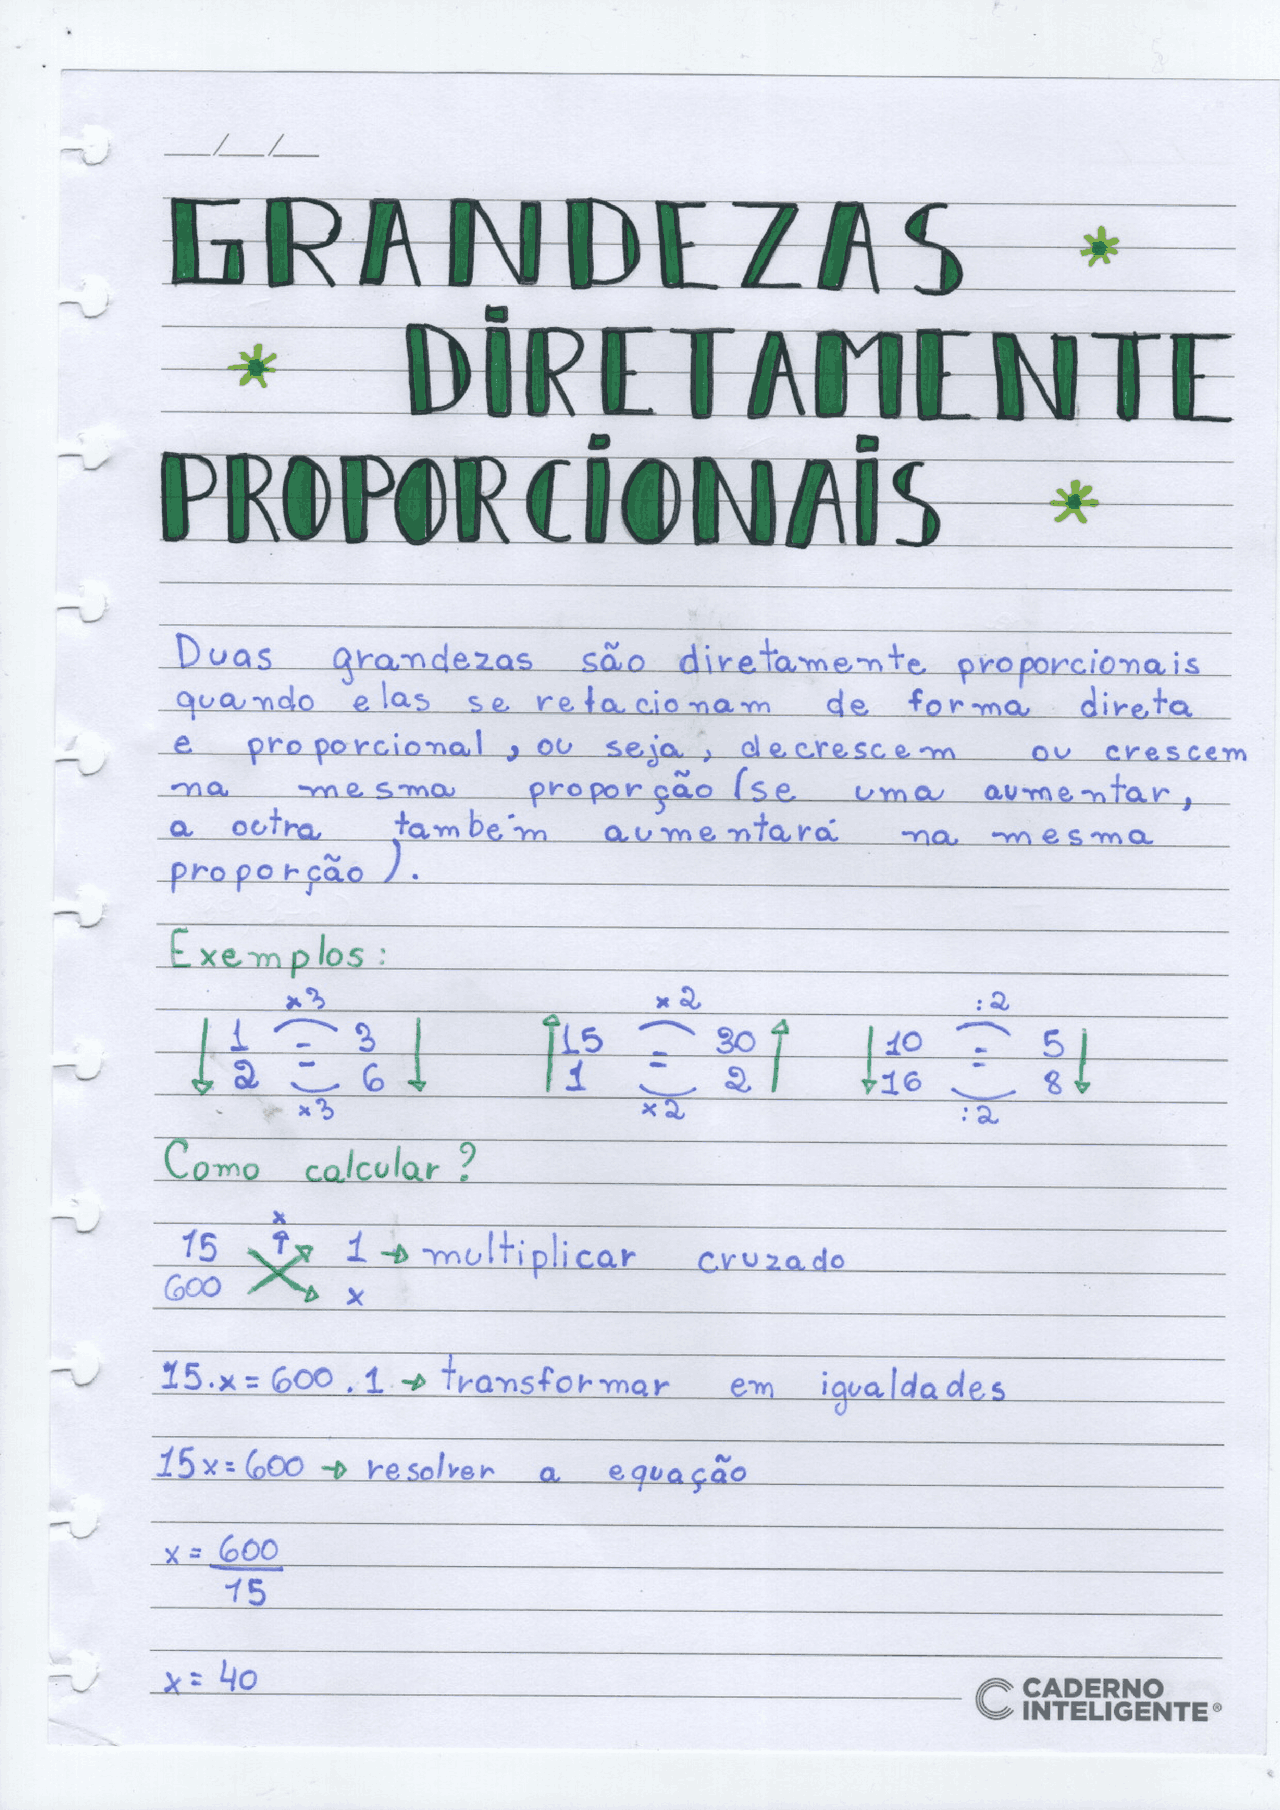 __/__/__
GRANDEZAS
DIRETAMENTE
PROPORCIONAIS
Duas grandezas são diretamente proporcionais
quando elas se relacionam de forma direta
e proporcional, ou seja, decrescem ou crescem
na mesma proporção (se uma aumentar,
a outra também aumentará na mesma
proporção).
Exemplos:
x3 x2 :2
1 = 3 15 = 30 10 = 5
2 6 1 2 16 8
x3 x2 :2
Como calcular?
x
15 1 → multiplicar cruzado
600 x
15.x = 600.1 → transformar em igualdades
15x = 600 → resolver a equação
x = 600
15
x = 40
CADERNO
INTELIGENTE®